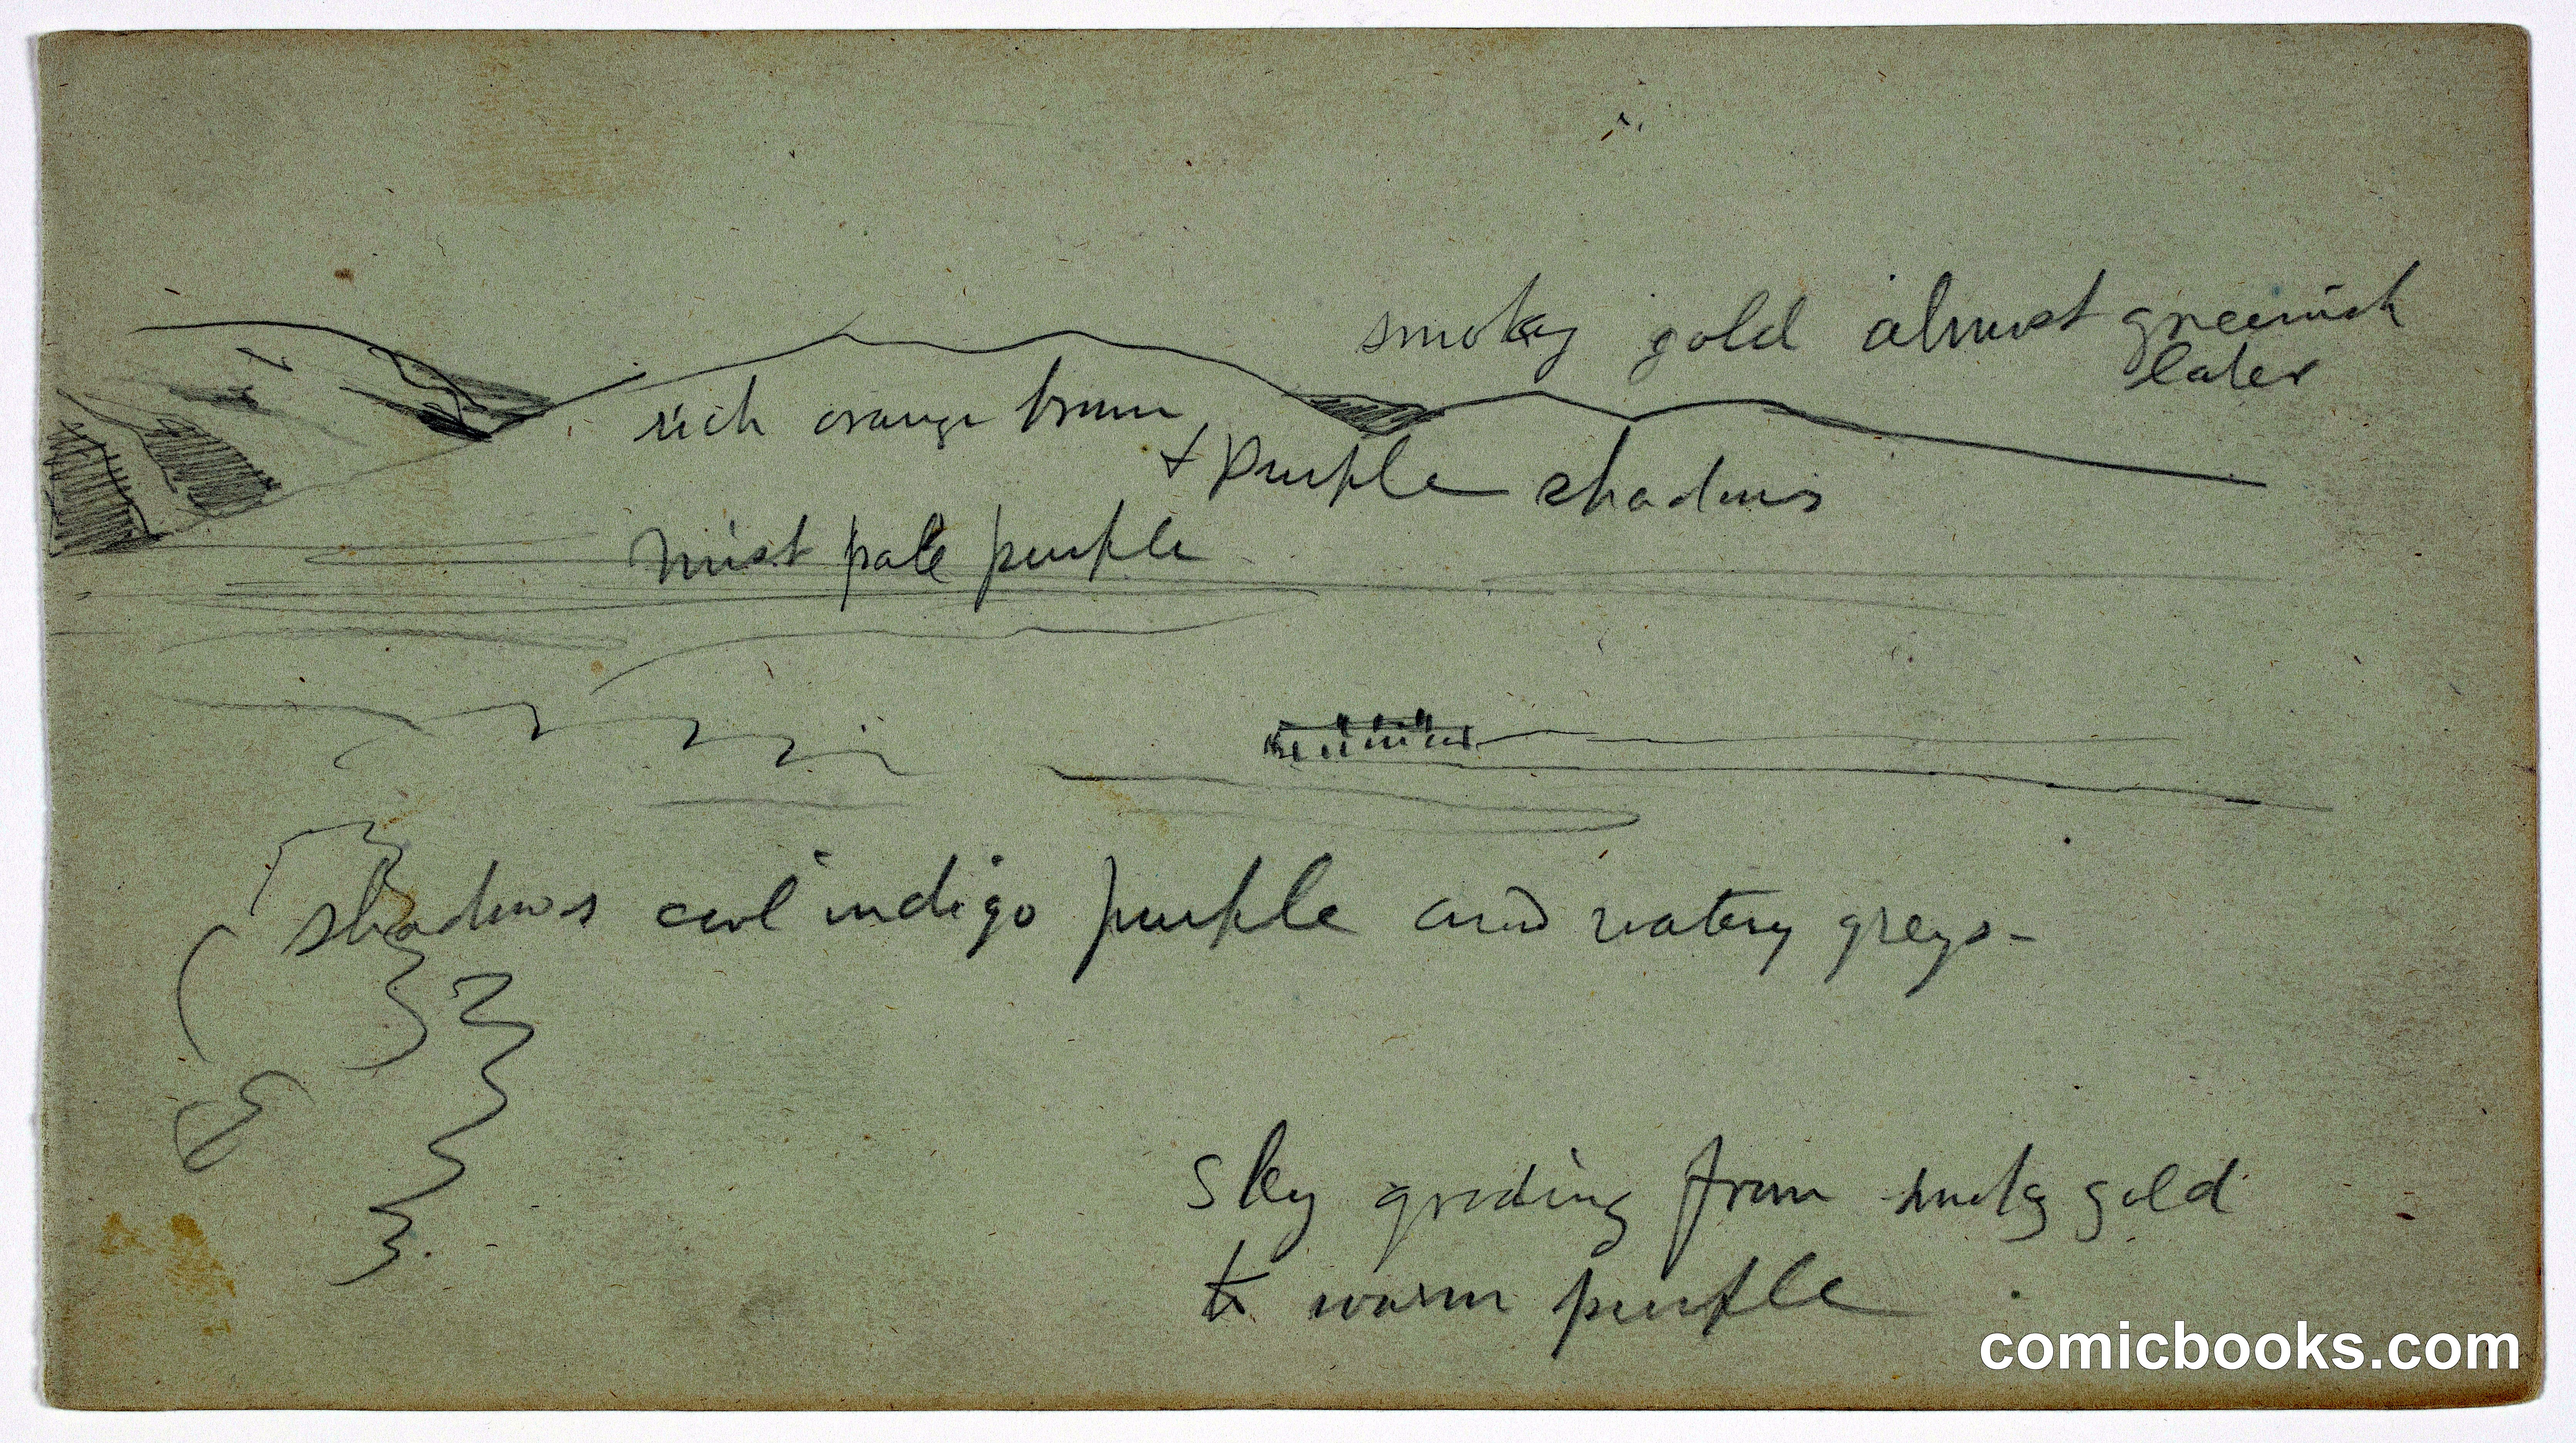 smokey gold almost greenish
later
rich orange brown
+ purple shadows
mist pale purple
shadows cool indigo purple and watery greys-
sky grading from smoky gold
to warm purple
comicbooks.com